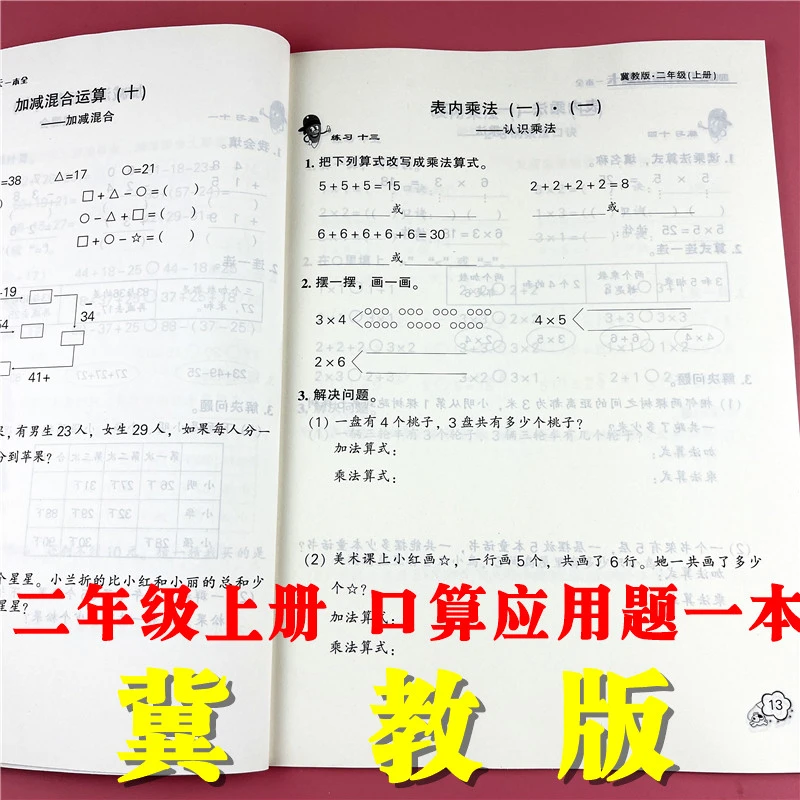 一本全
加减混合运算(十)
——加减混合
=38 △=17 ○=21
□+△-○=( )
○-△+□=( )
□+○-☆=( )
-19
34
54
41+
,有男生23人,女生29人,如果每人分一
分到苹果?
个星星。小兰折的比小红和小丽的总和少
星星?
冀教版·二年级(上册)
表内乘法(一)·(一)
——认识乘法
练习十三
1. 把下列算式改写成乘法算式。
5+5+5=15 2+2+2+2=8
或 或
6+6+6+6+6=30
或
2. 摆一摆,画一画。
3×4 ○○○ ○○○ ○○○ ○○○ 4×5
○○○○ ○○○○ ○○○○
2×6
3. 解决问题。
(1)一盘有4个桃子,3盘共有多少个桃子?
加法算式:
乘法算式:
(2)美术课上小红画☆,一行画5个,共画了6行。她一共画了多少
个☆?
加法算式:
乘法算式:
13
二年级上册 口算应用题一本
冀教版